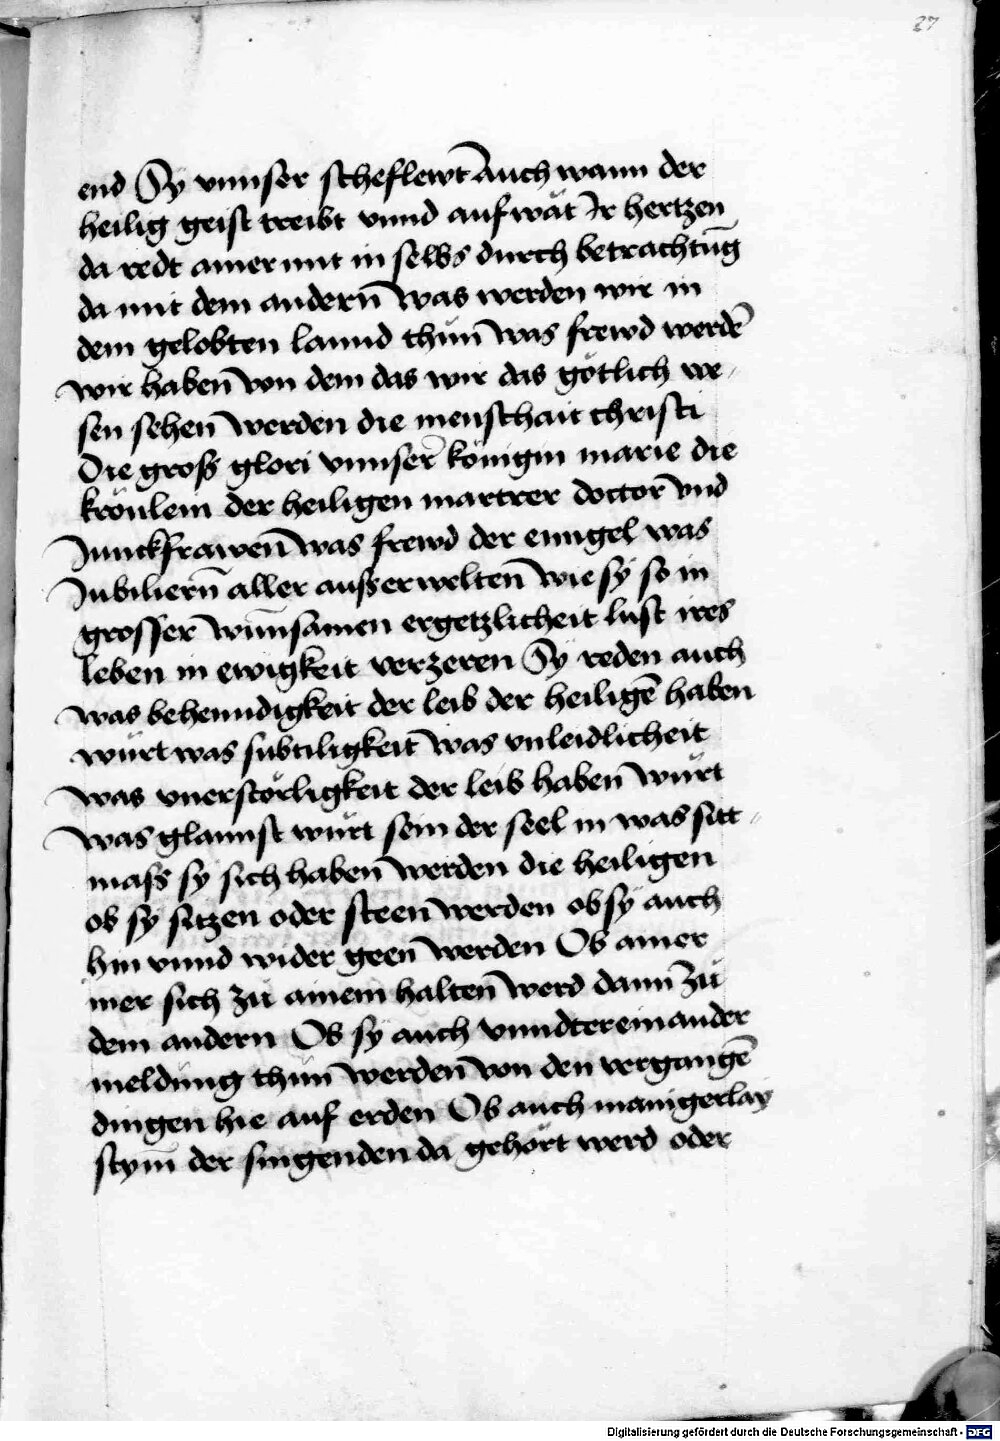 27
end Sy vnnser scheflewt Auch wann der
heilig geist treibt vnnd aufwät Ir hertzen
da redt ainer mit in selbs durch betrachtūg
da mit dem andern̄ was werden wir in
dem gelobten lannd thun̄ was frewd werdē
wir haben̄ von dem das wir das götlich we-
sen sehen̄ werden die menschait christi
Die groß glori vnnser̄ königin marie die
krönlein der heiligen martrer doctor̄ vnd
Junckfrawen̄ was frewd der enngel was
Jubiliern̄ aller ausserwelten̄ wie sy so in
grosser̄ wun̄samen ergetzlicheit lust ires
leben in ewigkeit verzeren Sy reden auch
was behenndigkeit der leib der heiligē haben
würt was subtiligkeit was vnleidlicheit
was vnerstörligkeit der leib haben̄ würt
was glannst würt sein der seel in was sitt-
mass sy sich haben̄ werden die heiligen
ob sy sitzen oder steen̄ werden ob sy auch
hin vnnd wider geen̄ werden Ob ainer
mer sich zü ainem halten̄ werd dann̄ zü
dem andern Ob sy auch vnndtereinander
meldung thun̄ werden̄ von den vergangē
dingen hie auf erden Ob auch manigerlay
stym̄ der singenden da gehört werd oder
Digitalisierung gefördert durch die Deutsche Forschungsgemeinschaft - DFG